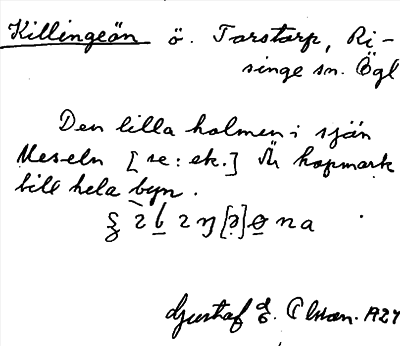 Killingeön ö. Torstorp, Ri-
singe sn. Ögl
Den lilla holmen i sjön
Meseln [se: ek.] Är hopmark
till hela byn.
Gustaf E. Olsson. 1924